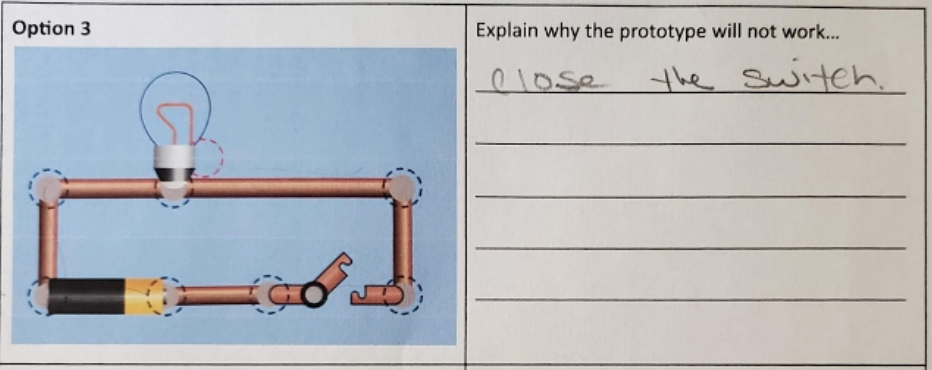 Option 3
Explain why the prototype will not work...
Close the switch.